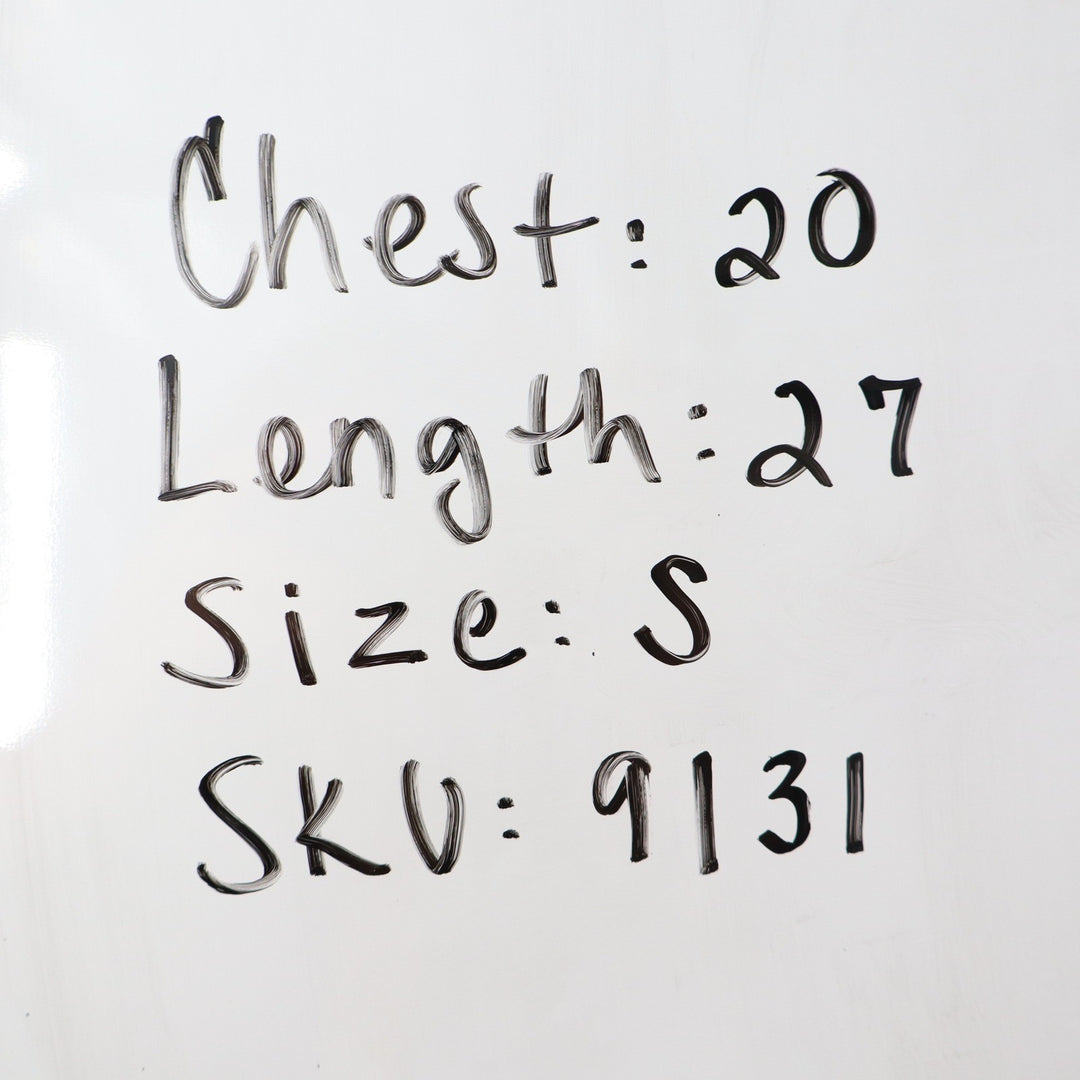 Chest: 20
Length: 27
Size: S
SKU: 9131